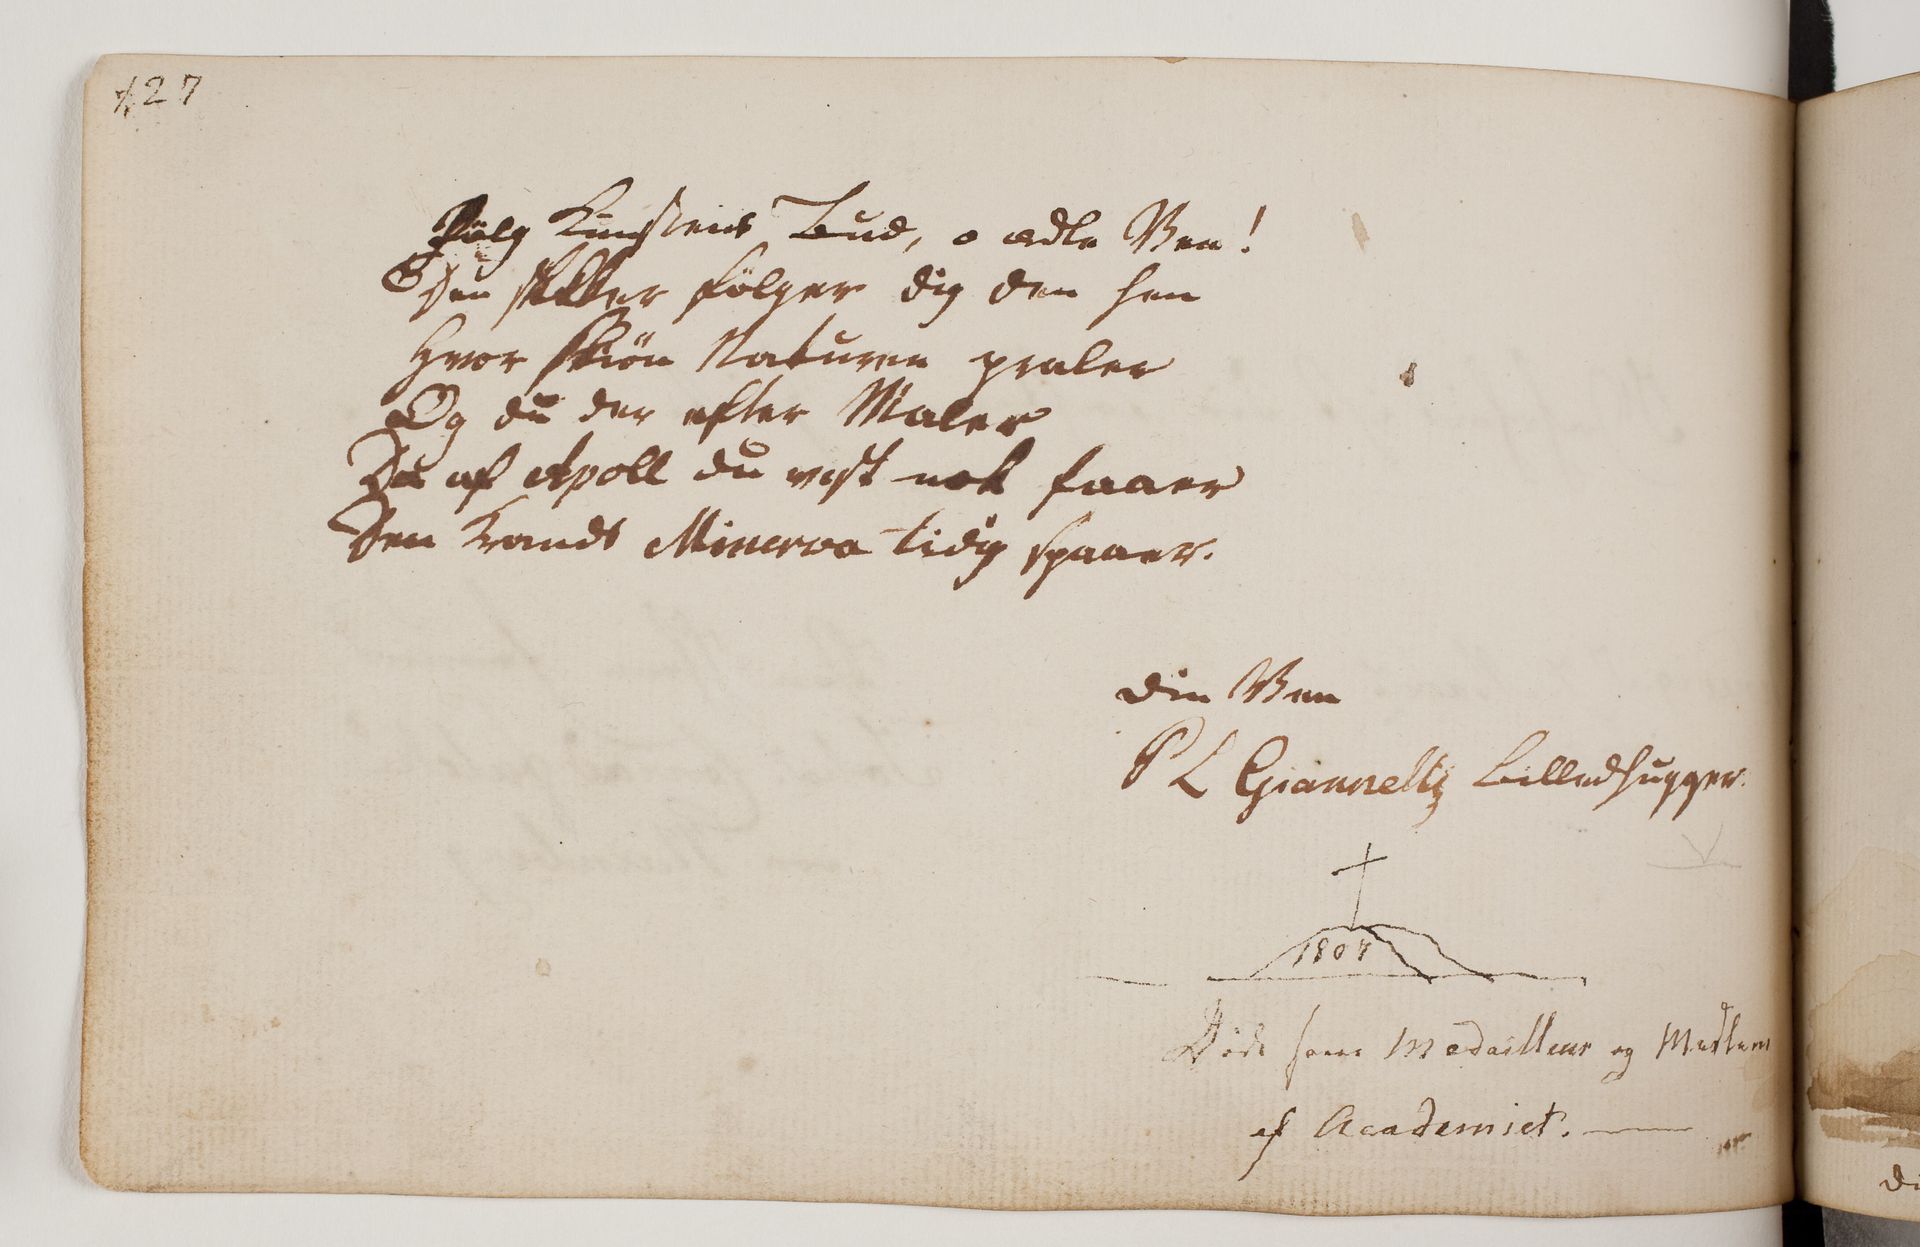 127
Følg Kunstens Bud, o ædle Ven!
Den sikker følger dig den hen
Hvor skiön Naturen praler
Og du der efter Maler
Da af Apoll du vist nok faaer
Den Krands Minerva tidig spaaer.
Din Ven
P L Gianelli Billedhugger.
1807
Döde som Medailleur og Medlem
af Academiet.